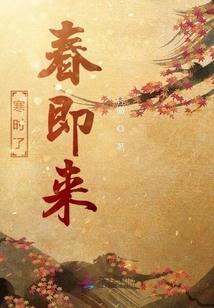 寒时了
春即来
著